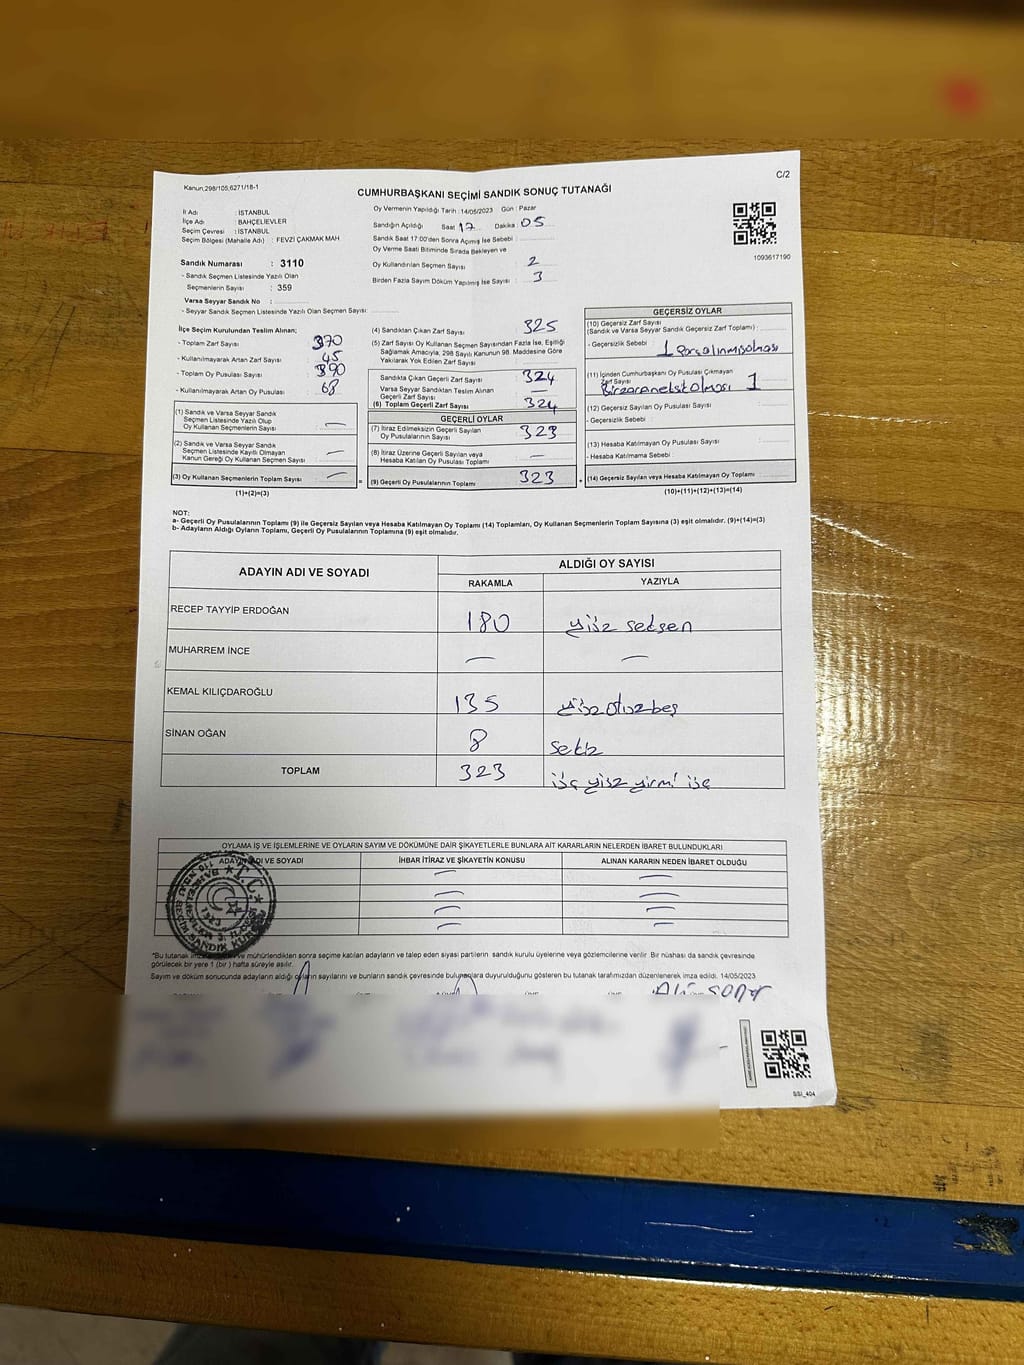 C/2
Kanun,298/105;6271/18-1
CUMHURBAŞKANI SEÇİMİ SANDIK SONUÇ TUTANAĞI
İl Adı : İSTANBUL
İlçe Adı : BAHÇELİEVLER
Seçim Çevresi : İSTANBUL
Seçim Bölgesi (Mahalle Adı) : FEVZİ ÇAKMAK MAH
Sandık Numarası : 3110
- Sandık Seçmen Listesinde Yazılı Olan
Seçmenlerin Sayısı : 359
Varsa Seyyar Sandık No :
- Seyyar Sandık Seçmen Listesinde Yazılı Olan Seçmen Sayısı:
Oy Vermenin Yapıldığı Tarih : 14/05/2023 Gün : Pazar
Sandığın Açıldığı Saat 17 Dakika : 05
Sandık Saat 17:00'den Sonra Açımış İse Sebebi :
Oy Verme Saati Bitiminde Sırada Bekleyen ve
Oy Kullandırılan Seçmen Sayısı : 2
Birden Fazla Sayım Döküm Yapılmış İse Sayısı : 3
1093617190
İlçe Seçim Kurulundan Teslim Alınan;
- Toplam Zarf Sayısı : 370
- Kullanılmayarak Artan Zarf Sayısı : 45
- Toplam Oy Pusulası Sayısı : 390
- Kullanılmayarak Artan Oy Pusulası : 68
(1) Sandık ve Varsa Seyyar Sandık
Seçmen Listesinde Yazılı Olup
Oy Kullanan Seçmenlerin Sayısı : —
(2) Sandık ve Varsa Seyyar Sandık
Seçmen Listesinde Kayıtlı Olmayan
Kanun Gereği Oy Kullanan Seçmen Sayısı : —
(3) Oy Kullanan Seçmenlerin Toplam Sayısı : —
(1)+(2)=(3)
(4) Sandıktan Çıkan Zarf Sayısı : 325
(5) Zarf Sayısı Oy Kullanan Seçmen Sayısından Fazla İse, Eşitliği
Sağlamak Amacıyla, 298 Sayılı Kanunun 98. Maddesine Göre
Yakılarak Yok Edilen Zarf Sayısı :
Sandıkta Çıkan Geçerli Zarf Sayısı : 324
Varsa Seyyar Sandıktan Teslim Alınan
Geçerli Zarf Sayısı : —
(6) Toplam Geçerli Zarf Sayısı : 324
GEÇERLİ OYLAR
(7) İtiraz Edilmeksizin Geçerli Sayılan
Oy Pusulalarının Sayısı : 323
(8) İtiraz Üzerine Geçerli Sayılan veya
Hesaba Katılan Oy Pusulası Toplamı : —
= (9) Geçerli Oy Pusulalarının Toplamı : 323
GEÇERSİZ OYLAR
(10) Geçersiz Zarf Sayısı
(Sandık ve Varsa Seyyar Sandık Geçersiz Zarf Toplamı) :
- Geçersizlik Sebebi : 1
(11) İçinden Cumhurbaşkanı Oy Pusulası Çıkmayan
Zarf Sayısı : 1
(12) Geçersiz Sayılan Oy Pusulası Sayısı :
- Geçersizlik Sebebi :
(13) Hesaba Katılmayan Oy Pusulası Sayısı :
- Hesaba Katılmama Sebebi :
+ (14) Geçersiz Sayılan veya Hesaba Katılmayan Oy Toplamı :
(10)+(11)+(12)+(13)=(14)
NOT:
a- Geçerli Oy Pusulalarının Toplamı (9) ile Geçersiz Sayılan veya Hesaba Katılmayan Oy Toplamı (14) Toplamları, Oy Kullanan Seçmenlerin Toplam Sayısına (3) eşit olmalıdır. (9)+(14)=(3)
b- Adayların Aldığı Oyların Toplamı, Geçerli Oy Pusulalarının Toplamına (9) eşit olmalıdır.
ADAYIN ADI VE SOYADI
ALDIĞI OY SAYISI
RAKAMLA YAZIYLA
RECEP TAYYİP ERDOĞAN 180 yüz seksen
MUHARREM İNCE — —
KEMAL KILIÇDAROĞLU 135 yüz otuz beş
SİNAN OĞAN 8 sekiz
TOPLAM 323 üç yüz yirmi üç
OYLAMA İŞ VE İŞLEMLERİNE VE OYLARIN SAYIM VE DÖKÜMÜNE DAİR ŞİKAYETLERLE BUNLARA AİT KARARLARIN NELERDEN İBARET BULUNDUKLARI
ADAYIN ADI VE SOYADI İHBAR İTİRAZ VE ŞİKAYETİN KONUSU ALINAN KARARIN NEDEN İBARET OLDUĞU
T.C.
1923
*Bu tutanak ve mühürlendikten sonra seçime katılan adayların ve talep eden siyasi partilerin sandık kurulu üyelerine veya gözlemcilerine verilir. Bir nüshası da sandık çevresinde
görülecek bir yere 1 (bir) hafta süreyle asılır.
Sayım ve döküm sonucunda adayların aldığı oyların sayılarını ve bunların sandık çevresinde bulunanlara duyurulduğunu gösteren bu tutanak tarafımızdan düzenlenerek imza edildi. 14/05/2023